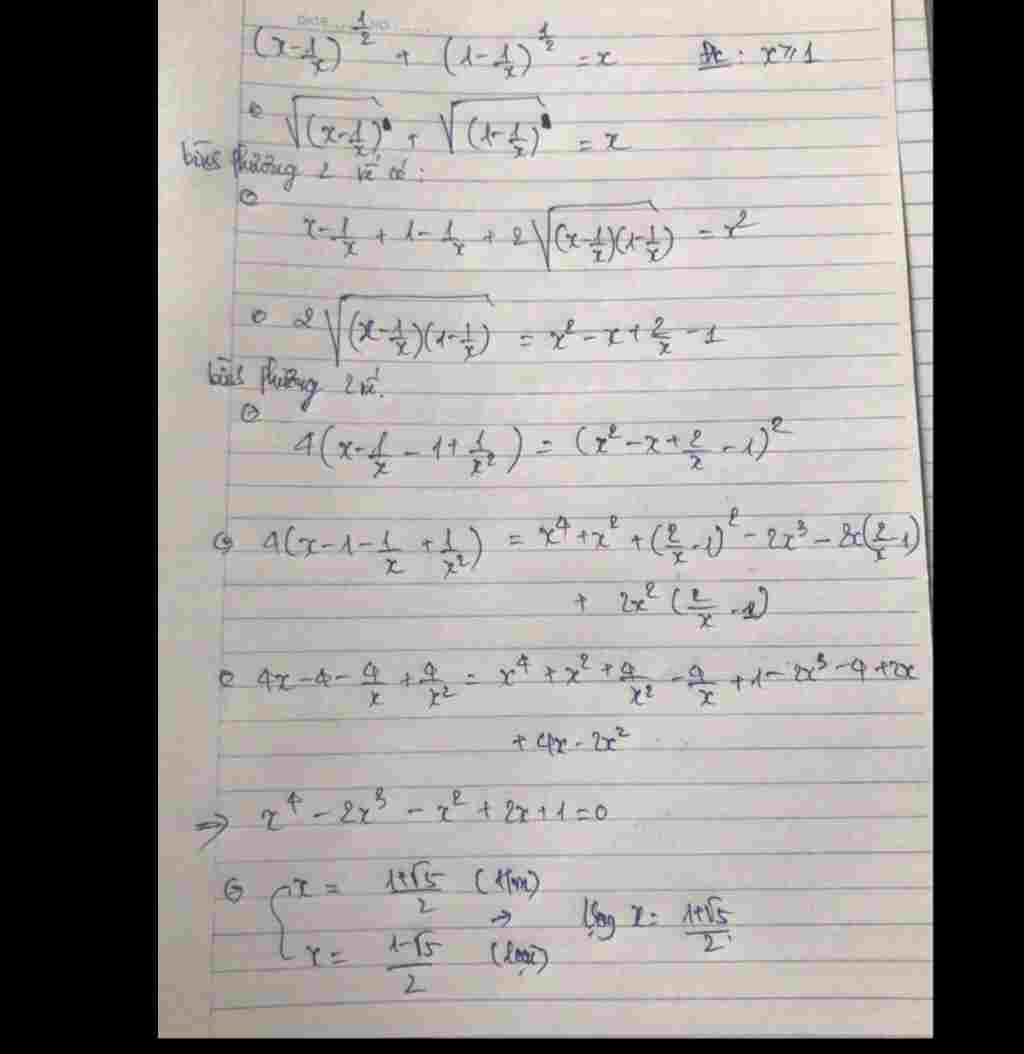 DATE NO
(x-1/x)^{1/2} + (1-1/x)^{1/2} = x ĐK: x ≥ 1
⇔ √((x-1/x)) + √((1-1/x)) = x
bình phương 2 vế có:
⇔
x - 1/x + 1 - 1/x + 2√((x-1/x)(1-1/x)) = x²
⇔ 2√((x-1/x)(1-1/x)) = x² - x + 2/x - 1
bình phương 2 vế.
⇔
4(x - 1/x - 1 + 1/x²) = (x² - x + 2/x - 1)²
⇔ 4(x - 1 - 1/x + 1/x²) = x⁴ + x² + (2/x - 1)² - 2x³ - 2x(2/x - 1)
+ 2x²(2/x - 1)
⇔ 4x - 4 - 4/x + 4/x² = x⁴ + x² + 4/x² - 4/x + 1 - 2x³ - 4 + 2x
+ 4x - 2x²
⇒ x⁴ - 2x³ - x² + 2x + 1 = 0
⇔ { x = (1+√5)/2 (t/m)
→ Vậy x = (1+√5)/2
x = (1-√5)/2 (loại)